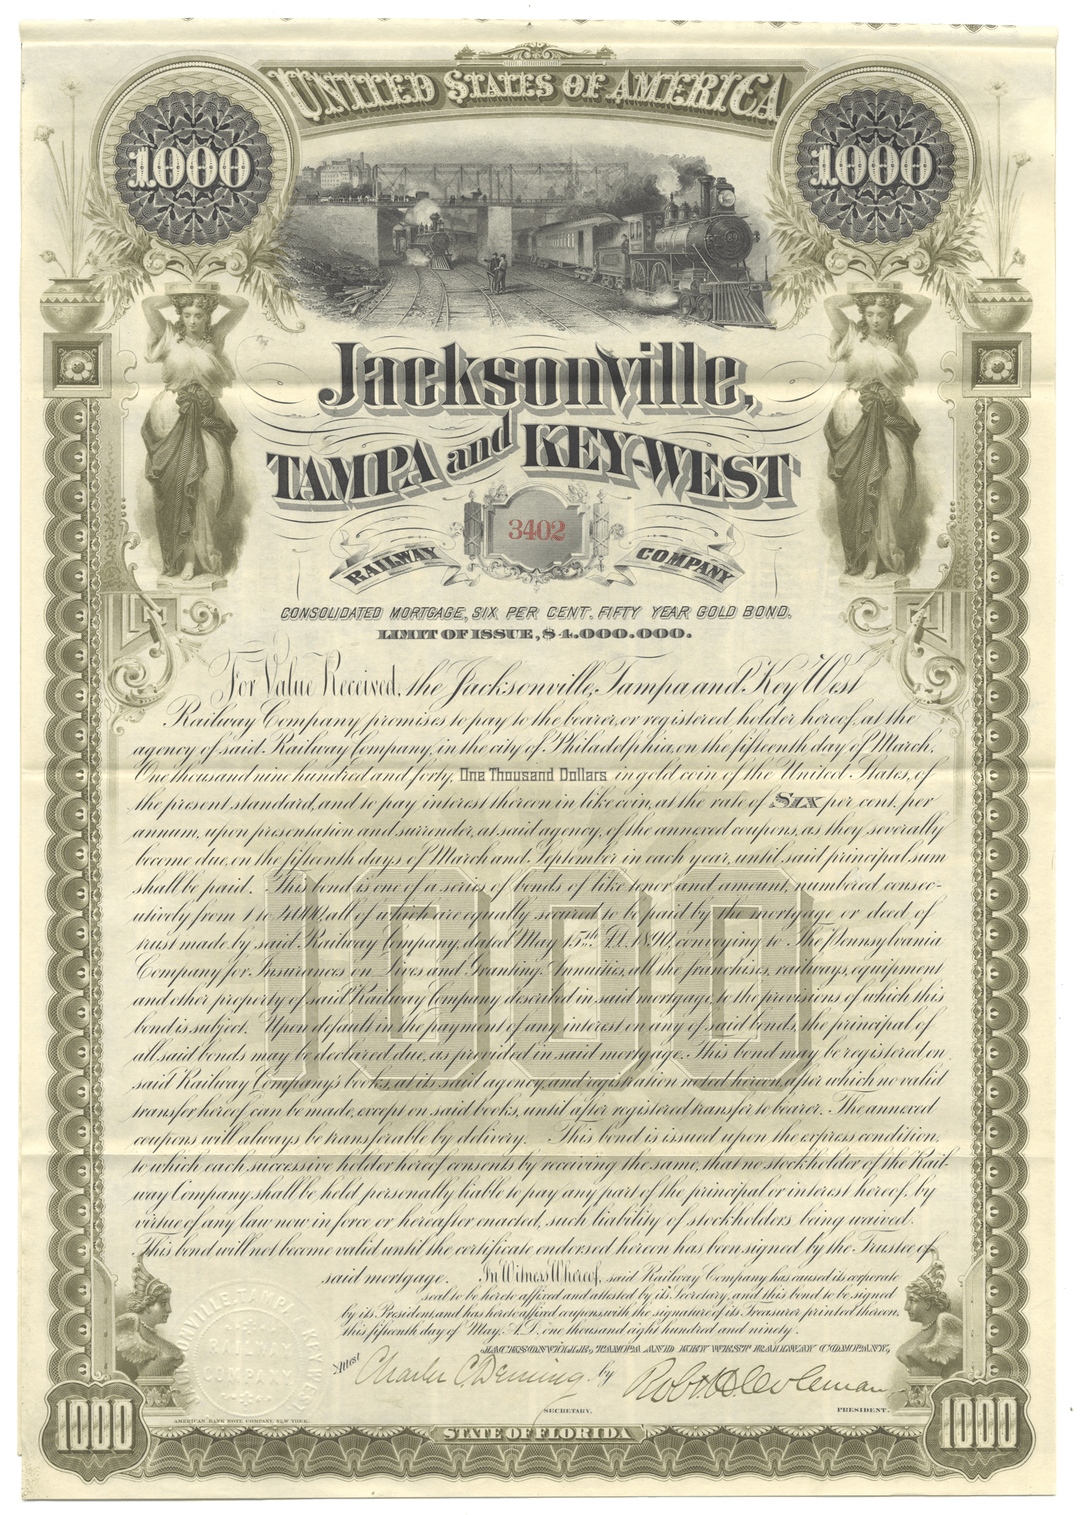 UNITED STATES OF AMERICA
1000
1000
Jacksonville,
TAMPA and KEY-WEST
3402
RAILWAY COMPANY
CONSOLIDATED MORTGAGE, SIX PER CENT. FIFTY YEAR GOLD BOND.
LIMIT OF ISSUE, $4.000.000.
For Value Received, the Jacksonville, Tampa and Key West
Railway Company promises to pay to the bearer, or registered holder hereof, at the
agency of said Railway Company, in the city of Philadelphia, on the fifteenth day of March,
One thousand nine hundred and forty, One Thousand Dollars in gold coin of the United States, of
the present standard, and to pay interest thereon in like coin, at the rate of SIX per cent. per
annum, upon presentation and surrender, at said agency, of the annexed coupons, as they severally
become due, on the fifteenth days of March and September in each year, until said principal sum
shall be paid. This bond is one of a series of bonds of like tenor and amount, numbered consec-
utively from 1 to 4000, all of which are equally secured to be paid by the mortgage or deed of
trust made by said Railway Company, dated May 15th A.D. 1890, conveying to The Pennsylvania
Company for Insurances on Lives and Granting Annuities, all the franchises, railways, equipment
and other property of said Railway Company described in said mortgage, to the provisions of which this
bond is subject. Upon default in the payment of any interest on any of said bonds, the principal of
all said bonds may be declared due, as provided in said mortgage. This bond may be registered on
said Railway Company's books, at its said agency, and registration noted hereon, after which no valid
transfer hereof can be made, except on said books, until after registered transfer to bearer. The annexed
coupons will always be transferable by delivery. This bond is issued upon the express condition,
to which each successive holder hereof consents by receiving the same, that no stockholder of the Rail-
way Company shall be held personally liable to pay any part of the principal or interest hereof, by
virtue of any law now in force or hereafter enacted, such liability of stockholders being waived.
This bond will not become valid until the certificate endorsed hereon has been signed by the Trustee of
said mortgage. In Witness Whereof, said Railway Company has caused its corporate
seal to be hereto affixed and attested by its Secretary, and this bond to be signed
by its President and has hereto affixed coupons with the signature of its Treasurer printed thereon,
this fifteenth day of May, A.D. one thousand eight hundred and ninety.
JACKSONVILLE, TAMPA AND KEY WEST RAILWAY COMPANY,
Attest Charles C. Deming. by Robt. H. Coleman
SECRETARY. PRESIDENT.
JACKSONVILLE, TAMPA KEY WEST
RAILWAY
COMPANY
AMERICAN BANK NOTE COMPANY, NEW YORK.
1000
STATE OF FLORIDA
1000
1000